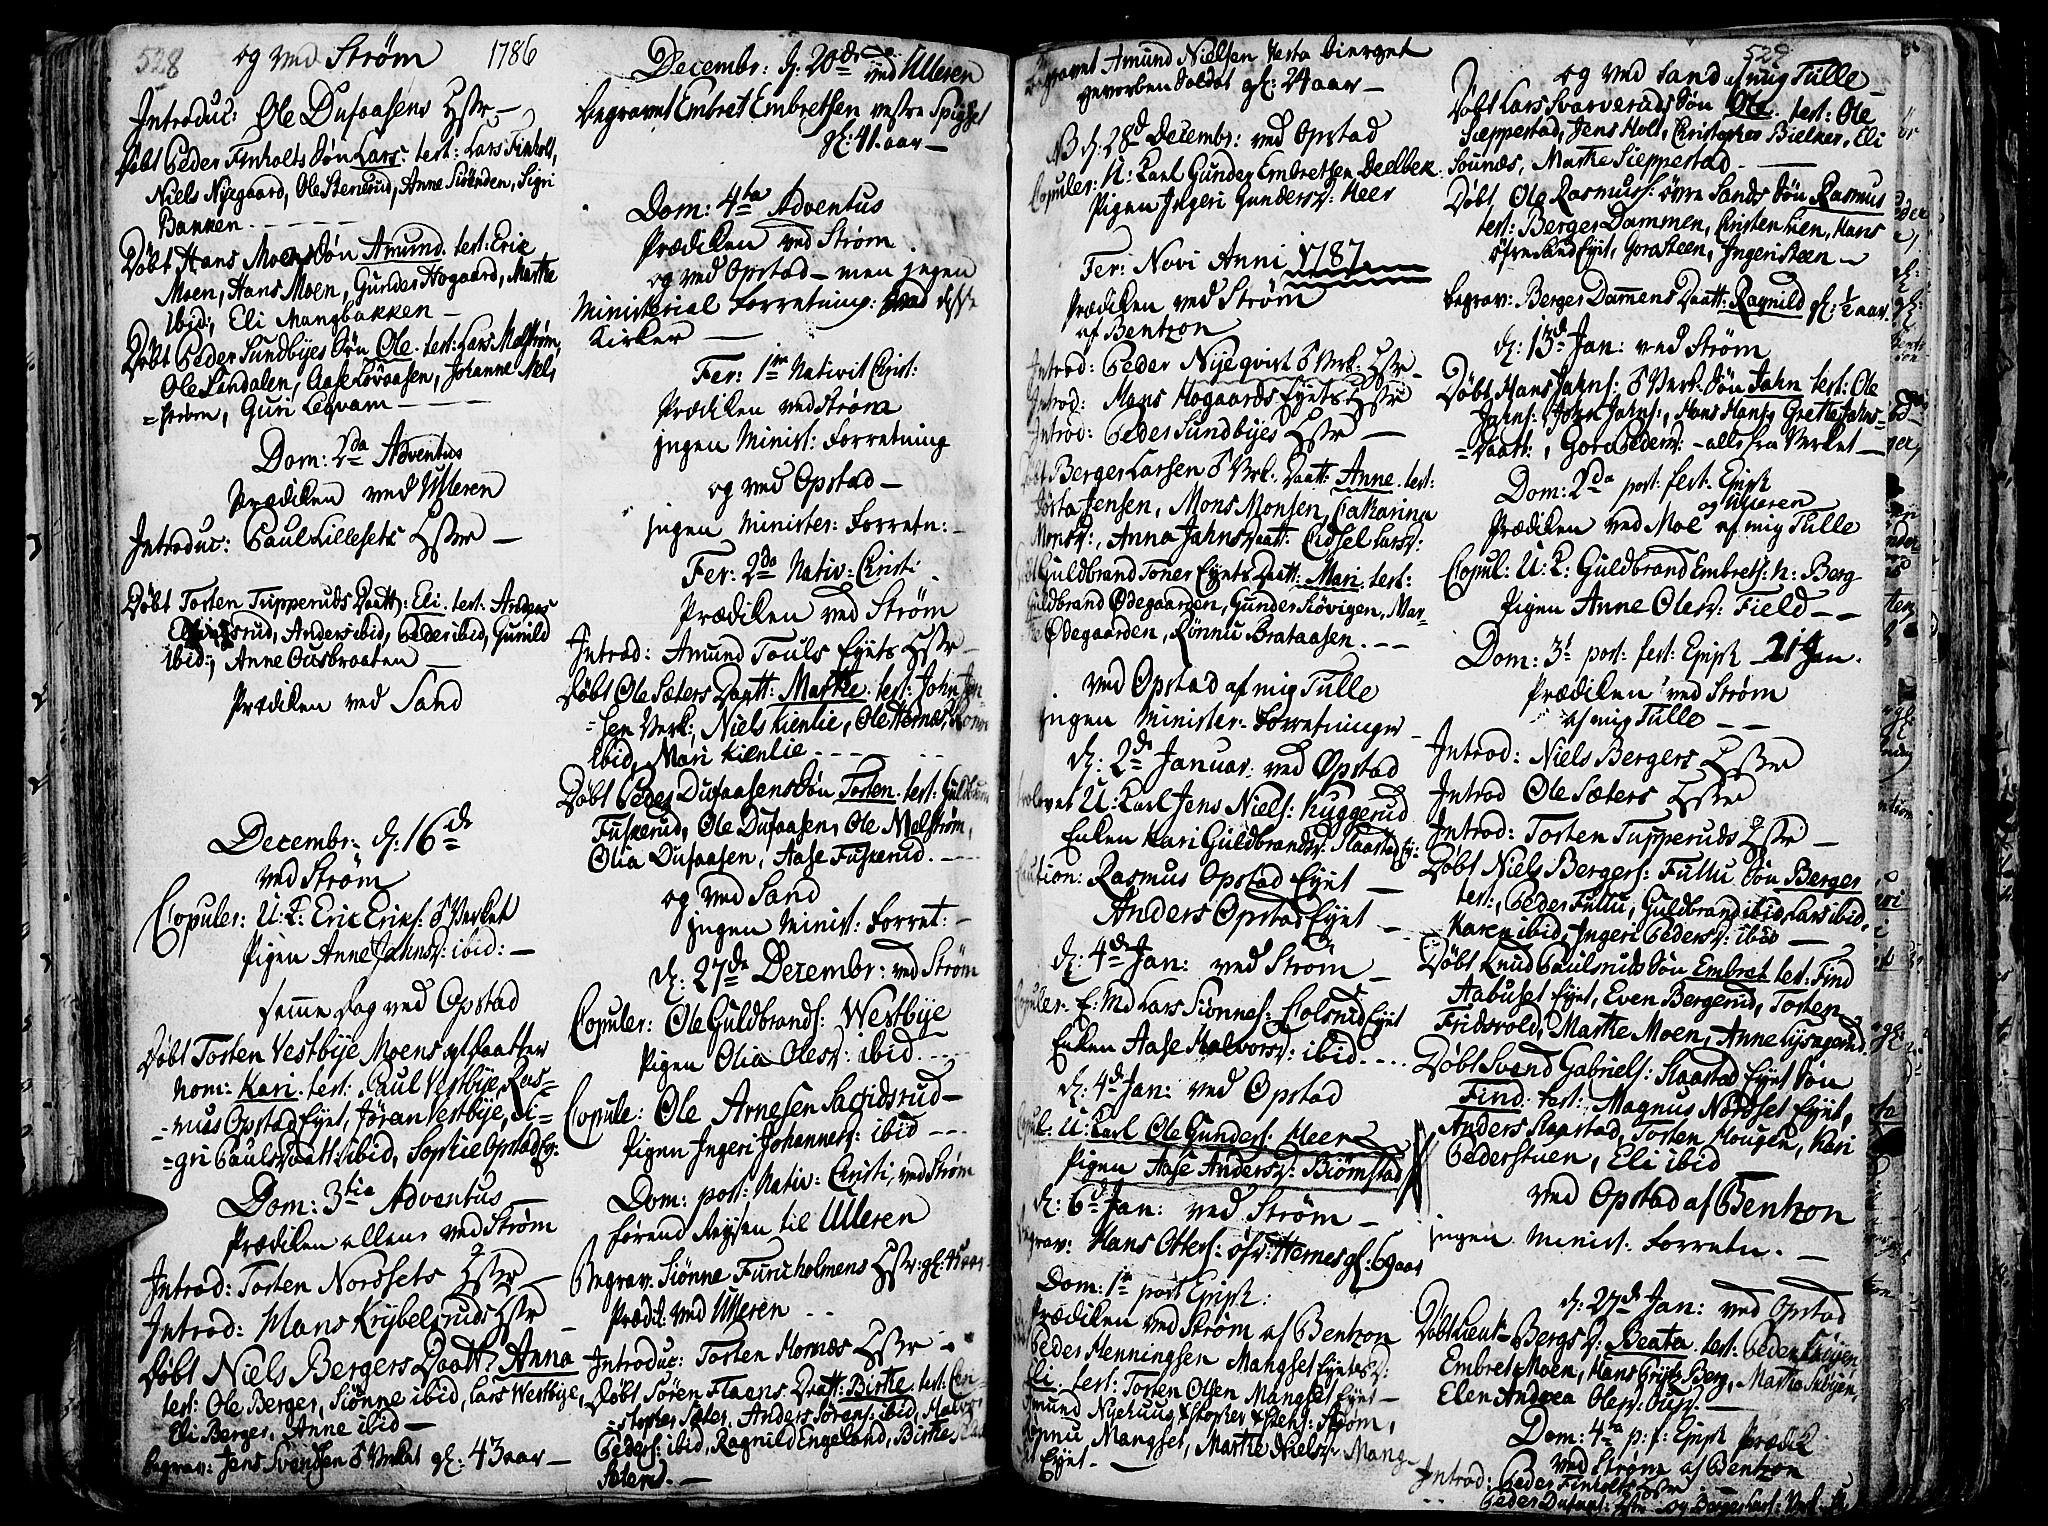 528
og ved Strøm 1786
Introduc: Ole Dusaasens Hstr —
Døbt Peder Finholts Søn Lars. test: Lars Finholt,
Niels Nyegaard, Ole Stensrud, Anne Siønden, Sigri
Banken
Døbt Hans Moens Søn Amund. test: Eric
Moen, Hans Moen, Gunder Hogaard, Marthe
ibid:, Eli Mangbakken —
Døbt Peder Sundbyes Søn Ole. test: Lars Melstrøm,
Ole Lindalen, Aase Løvaasen, Johanne Mel,
=strøm, Guri Leqvam —
Dom: 2da Adventus
Prædiken ved Ulleren
Introduc: Paul Lillesets Hstr —
Døbt Torsten Tupperuds Daatt: Eli. test: Anders
Anders ibid, Peder ibid, Gunild
ibid:, Anne Ousbraaten —
Prædiken ved Sand
Decembr: d: 16de
ved Strøm
Copuler: U: K: Eric Erics: ô Verket
Pigen Anne Jahnsd: ibid: —
samme dag ved Opstad
Døbt Torsten Vestbye Moens Daatter
Nom: Kari. test: Paul Vestbye, Ras=
=mus Opstad Eyet, Jøran Vestbye, Si=
=gri Pauls Daatt: ibid, Sophie Opstad Ey:
Dom: 3tia Adventus —
Prædiken allene ved Strøm
Introd: Torsten Nordsets Hstr —
Introd: Hans Krybelsruds Hstr
Døbt Niels Bergers Daatt: Anna
test: Ole Berger, Siønne ibid, Lars Westbye,
Eli Berger, Anne ibid —
begrav: Jens Svendsen ô Verket gl: 43 aar —
Decembr: d: 20de ved Ulleren
begravet Embret Embretsen vestre Spigset
gl: 41 aar —
Dom: 4ta Adventus
Prædiken ved Strøm
og ved Opstad — men ingen
Ministerial Forretning: ved disse
Kirker —
Fer: 1ma Nativit Christ:
Prædiken ved Strøm
ingen Minist: Forretning
og ved Opstad —
ingen Minister: Forretn: —
Fer: 2da Nativ: Christi
Prædiken ved Strøm
Introd: Amund Touls Eyets Hstr —
Døbt Ole Sæters Daatt: Marthe. test: John Jen=
=sen Verk:, Niels Kienlie, Ole Hernæs,
ibid, Mari Kienlie
Døbt Peder Dusaasens Søn Torsten. test: Guldbrand
Fuskerud, Ole Dusaasen, Ole Melstrøm,
Olia Dusaasen, Aase Fuskerud. —
og ved Sand
ingen Minist: Forret: —
d: 27de Decembr: ved Strøm
Copuler: Ole Guldbrands: Westbye
Pigen Olia Olesd: ibid
Copule: Ole Arnesen —
Pigen Ingeri Johannesd: ibid —
Dom: post: Nativ: Christi, ved Strøm
førend Reysen til Ulleren
Begrav: Siønne Furuholmens Hstr: gl: aar
Prædik: ved Ulleren
Introduc: Torsten Hornæs Hstr —
Døbt Sören Haans Daatt: Birthe. test: Chri=
=stopher Sæter, Anders Sørens: ibid,
Peders: ibid, Ragnild Engeland, Birthe
Sætern. —
529
begravet Amund Nielsen Testa Bierget
gevorben Soldat gl: 24 aar —
NB d: 28de Decembr: ved Opstad
Copuler: U: Karl Gunder Embretsen Deelbek
Pigen Ingeri Gundersd: Meer
Fer: Novi Anni 1787
Prædiken ved Strøm
af Bentzon
Introd: Peder Nyeqvist ô Verk: Hstr —
Introd: Hans Hogaards Eyets Hstr
Introd: Peder Sundbyes Hstr —
Døbt Berger Larsen ô Verk: Daatt: Anne. test:
Torsta Jensen, Mons Monsen, Catharina
Monsd:, Anna Jahns Daatt: Cidsel Larsd:
Døbt Guldbrand Toner Eyets Daatt: Mari. test:
Guldbrand Ødegaarden, Gunder Skøvigen, Mar=
Ødegaarden, Rønnu Brataasen.
ved Opstad af mig Tulle
ingen Minister: Forretninger —
d: 2de Januar: ved Opstad
U: Karl Jens Niels: Kuggerud
Enken Kari Guldbrandsd: Slaastad Ey:
Caution: Rasmus Opstad Eyet —
Anders Opstad Eyet —
d: 4de Jan: ved Strøm —
Copuler: E: Md Lars Siønnes: Colsrud Eyet
Enken Aase Halvorsd: ibid
d: 4de Jan: ved Opstad
Copul: U: Karl Ole Gunders: Meer
Pigen Aase Andersd: Biømstad
d: 6te Jan: ved Strøm —
Begrav: Hans Otters: öfr: Hernes gl: 69 aar
Dom: 1ma post Epiph:
Prædiken ved Strøm af Bentzon
Peder Henningsen Mangset Eyets D:
Eli. test: Torsten Olsen Mangset Eyet —
Amund Nyehuus, Strøm,
Rønnu Mangset, Marthe Nielsd: Mang=
Eyet —
og ved Sand af mig Tulle
Døbt Lars Svarveruds Søn Ole. test: Ole
Sæppestad, Jens Holt, Christopher Bielker, Eli
Sounæs, Marthe Sieppestad —
Døbt Ole Rasmuss: övre Sands Søn Rasmus
test: Berger Dammen, Christen Lien, Hans
öfre Sand Eyet, Gora Steen, Ingeri Steen —
begrav: Berger Damens Daatt: Ragnild gl: ½ aar.
d: 13de Jan: ved Strøm
Døbt Hans Jahns: ô Verk: Søn Jahn test: Ole
Jahns: John Jahns:, Hans Hans:, Grethe Jahns=
=Daatt:, Gora Pedersd: — alle fra Verket —
Dom: 2da post: fest: Epiph
og Ulleren
Prædiken ved Moe af mig Tulle
Copul: U: K: Guldbrand Embrets: n: Berg
Pigen Anne Olesd: Field —
Dom: 3t post: fest: Epiph 21 Jan.
Prædiken ved Strøm
af mig Tulle —
Introd: Niels Bergers Hstr
Introd Ole Sæters Hstr
Introd: Torsten Tupperuds Hstr —
Døbt Niels Bergers: Fulltu Søn Berger
test:, Peder Fulltu, Guldbrand ibid, Lars ibid,
Karen ibid, Ingeri Pedersd: ibid —
Døbt Knud Paulsruds Søn Embret test: Find
Aabuset Eyet, Even Bergerud, Torsten
Fridsvold, Marthe Moen, Anne Lysagerud
Døbt Svend Gabriels: Slaastad Eyet Søn
Find. test:, Magnus Nordset Eyet,
Anders Slaastad, Torsten Hougen, Kari
Pederstuen, Eli ibid —
ved Opstad af Bentzon
ingen Minist: Forretn. —
d: 27de Jan: ved Opstad
Døbt Lieut: Bergs D: Beata. test: Peder Skøyen,
Embret Moen, Hans Berg, Marthe Skøyen,
Elen Andrea Olesd:
Dom: 4ta p: f: Epiph Prædik
ved Strøm af Bentzon
Introd: Peder Finholts Hstr
Peder Dusaas: Hstr og Berger Lars: Verk: